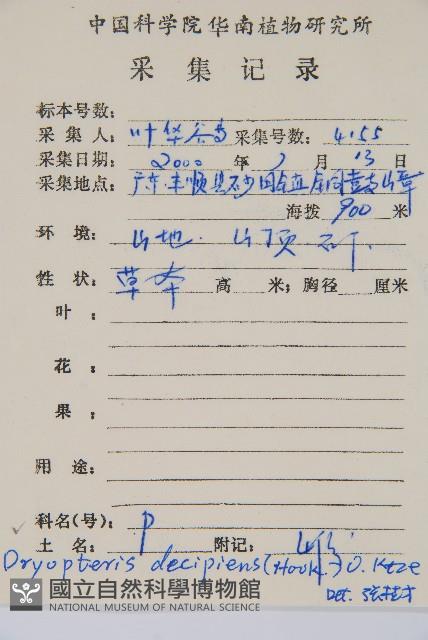 中国科学院华南植物研究所
采集记录
标本号数:
采集人: 叶华谷 采集号数: 4155
采集日期: 2000 年 月 13 日
采集地点: 广东丰顺县
海拨 900 米
环境: 山地. 山顶
性状: 草本 高 米; 胸径 厘米
叶:
花:
果:
用途:
科名(号): P
土名: 附记:
Dryopteris decipiens (Hook.) O. Ktze
Det.
國立自然科學博物館
NATIONAL MUSEUM OF NATURAL SCIENCE